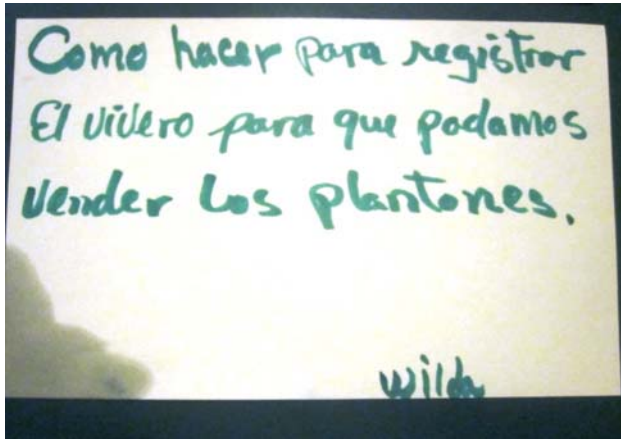 Como hacer para registrar
El vivero para que podamos
vender los plantones.
Wilda